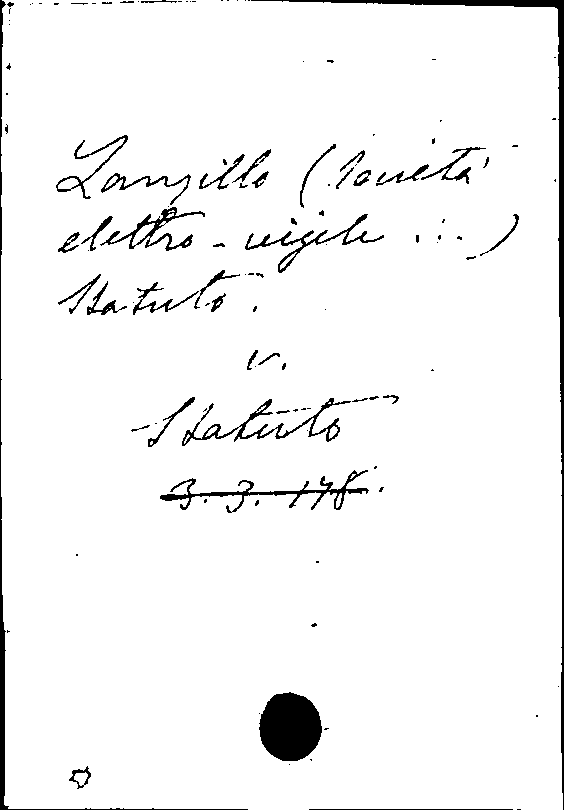 Lanzillo (Società
elettro-vigile ...)
Statuto.
v.
Statuto
3. 3. 178.